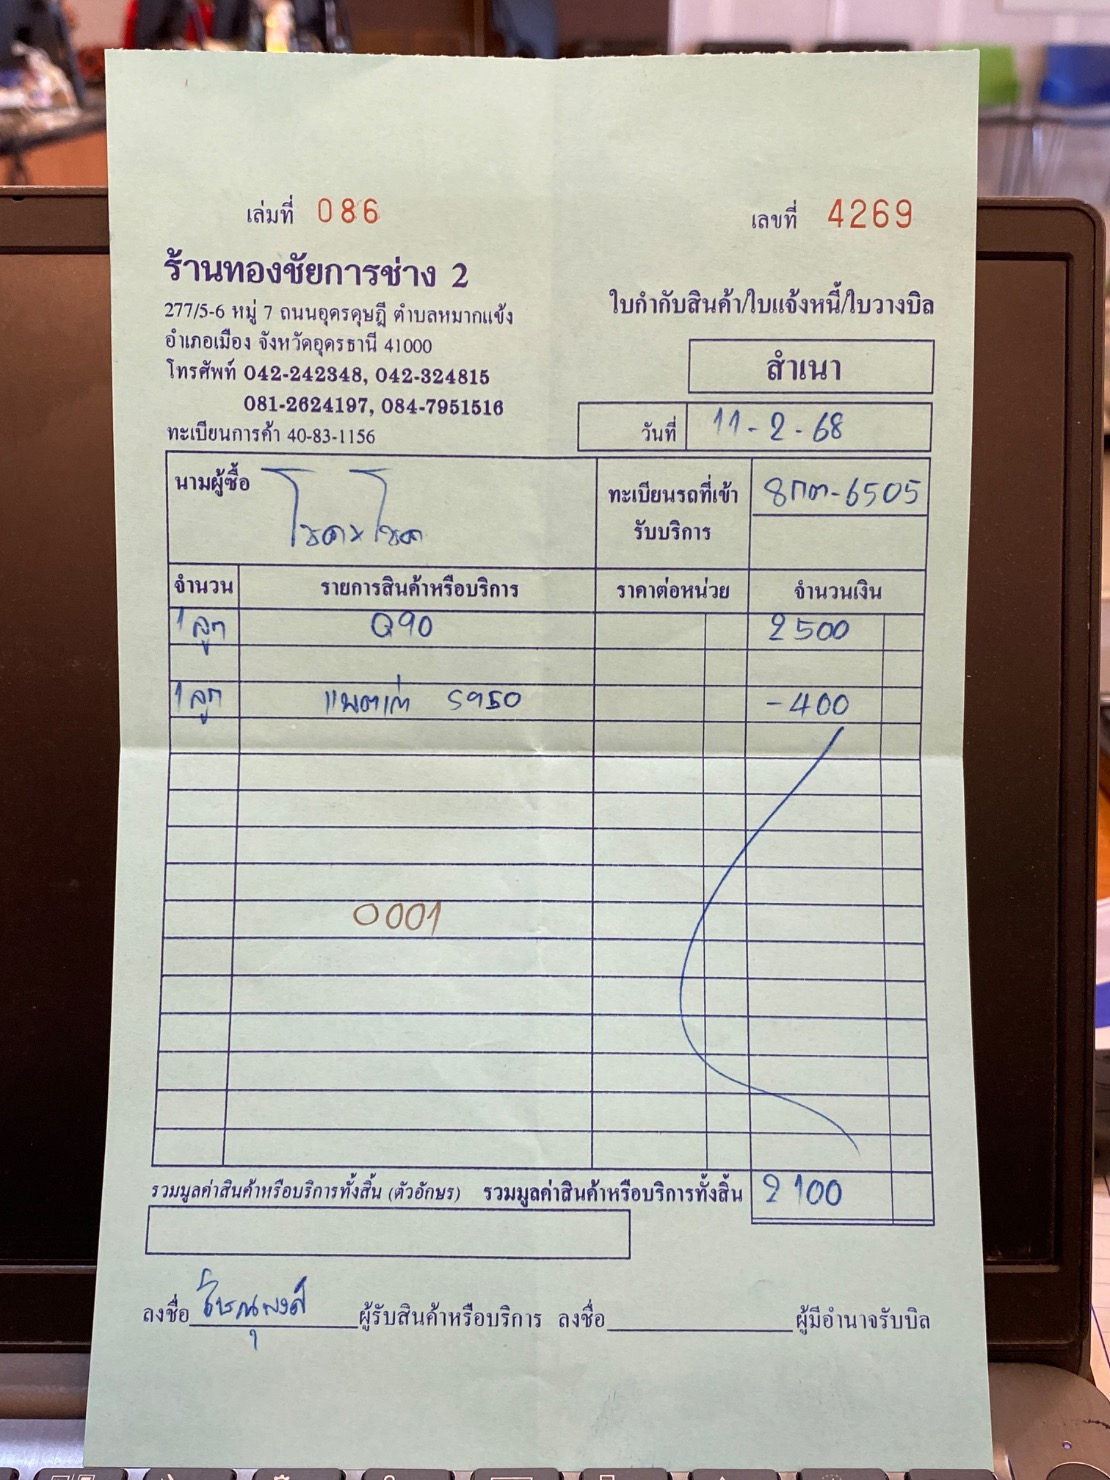 เล่มที่ 086
เลขที่ 4269
ร้านทองชัยการช่าง 2
277/5-6 หมู่ 7 ถนนอุดรดุษฎี ตำบลหมากแข้ง
อำเภอเมือง จังหวัดอุดรธานี 41000
โทรศัพท์ 042-242348, 042-324815
081-2624197, 084-7951516
ทะเบียนการค้า 40-83-1156
ใบกำกับสินค้า/ใบแจ้งหนี้/ใบวางบิล
สำเนา
วันที่ 11-2-68
นามผู้ซื้อ
ทะเบียนรถที่เข้ารับบริการ 8กต-6505
จำนวน รายการสินค้าหรือบริการ ราคาต่อหน่วย จำนวนเงิน
1 ลูก Q90 2500
1 ลูก แบตเก่า S95D -400
0001
รวมมูลค่าสินค้าหรือบริการทั้งสิ้น (ตัวอักษร) รวมมูลค่าสินค้าหรือบริการทั้งสิ้น 2100
ลงชื่อ ผู้รับสินค้าหรือบริการ ลงชื่อ ผู้มีอำนาจรับบิล